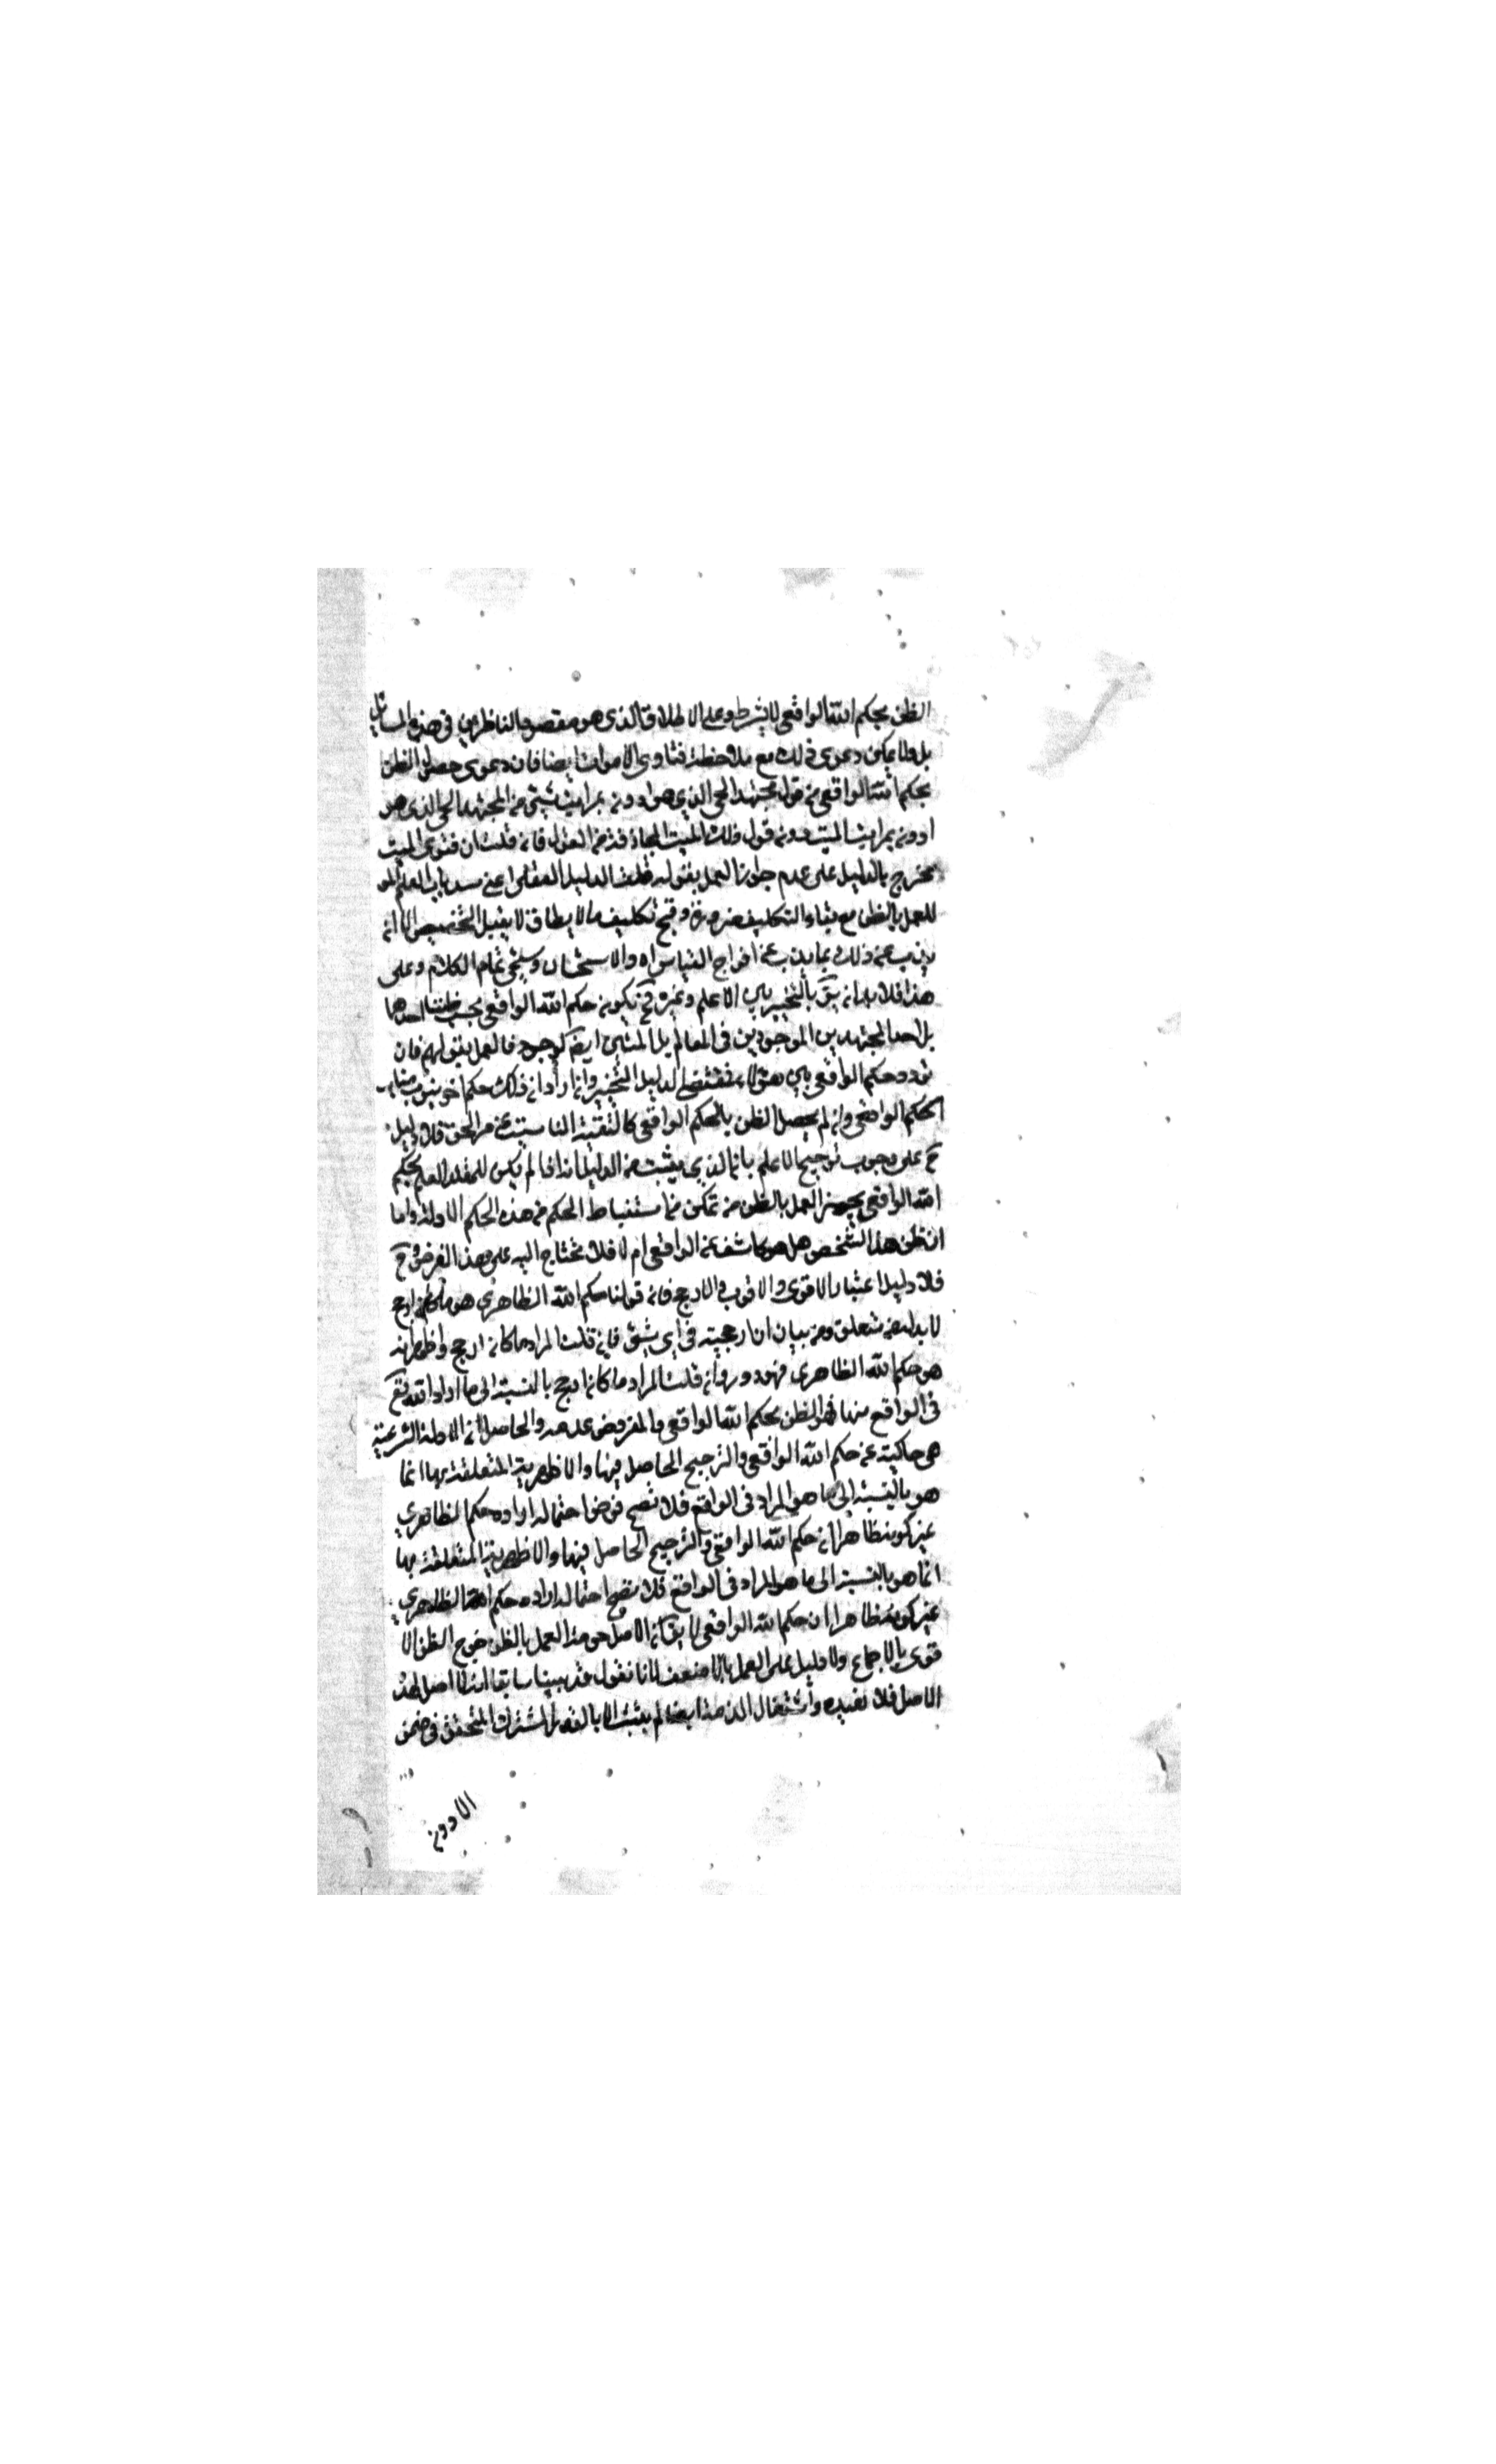 الظن بحكم الله الواقعى لابشرط وعلى الاطلاق الذى هو مقصود الناظرين فى هذه المسائل
بل ولا يمكن دعوى ذلك مع ملاحظة فتاوى الاموات ايضا فان دعوى حصول الظن
بحكم الله الواقعى من قول مجتهد الحى الذى هو ادون بمراتب شتى من المجتهد الحى الذى هو
ادون بمراتب الميت دون قول ذلك الميت المجازفة من القول فان قلت ان فتوى الميت
مخرج بالدليل على عدم جواز العمل بقوله قلت الدليل العقلى اعنى سد باب العلم
للعمل بالظن مع بقاء التكليف ضرورة وقبح تكليف ما لا يطاق لا يقبل التخصيص الا انه
يذب عن ذلك بما يذب عن اخراج القياس والاستحسان وسيجئ تمام الكلام وعلى
هذا فلابد ان يق بالتخيير بين الاعلم وغيره ح لكون حكم الله الواقعى بحسب ظننا احدهما
بل احد المجتهدين الموجودين فى العالم بل الميتين ايضا لو جوز العمل بقولهم فان
تردد حكم الواقعى بين هؤلاء فمقتضى الدليل التخيير وان اراد ان ذلك حكم اخر ينوب مناب
الحكم الواقعى وان لم يحصل الظن بالحكم الواقعى كالتقية النا عن الحق فلا دليل
ح على وجوب ترجيح الاعلم بان الذى يثبت من الدليل انه اذا لم يكن للمقلد العلم بحكم
الله الواقعى يجوز العمل بالظن من تمكن من استنباط الحكم من هذه الحكم الادلة واما
ان ظن هذا الشخص هل هو كاشف عن الواقعى ام لا فلا نحتاج اليه على هذا الفرض وح
فلا دليل اعتبار الاقوى والاقرب والارجح فان قولنا حكم الله الظاهرى هو ما كان ارجح
لابد له من متعلق ومن بيان ان ارجحيته فى اى شئ فان قلت المراد ما كان ارجح واظهر انه
هو حكم الله الظاهرى فهو دور وان قلت المراد ما كان ارجح بالنسبة الى ما اراد الله تع
فى الواقع منها فهو الظن بحكم الله الواقعى والمفروض عدمه والحاصل ان الادلة الشرعية
هى حاكية عن حكم الله الواقعى والترجيح الحاصل فيها والاظهرية المتعلقة بها انما
هو بالنسبة الى ما هو المراد فى الواقع فلا تصح فرض احتمال ارادة حكم الظاهرى
غير كونه ظاهرا من حكم الله الواقعى والترجيح الحاصل فيها والاظهرية المتعلقة بها
انما هو بالنسبة الى ما هو المراد فى الواقع فلا يصح احتمال ارادة حكم الله الظاهرى
غير كونه ظاهرا ان حكم الله الواقعى لا يق ان الاصل حرمة العمل بالظن خرج الظن الا
قوى بالاجماع ولا دليل على العمل بالاضعف لانا نقول قد بينا سابقا انه لا اصل لهذ
الاصل فلا نعيده واشتغال الذمة ايضا لم يثبت الا بالقدر المشترك المتحقق فى ضمن
الادون